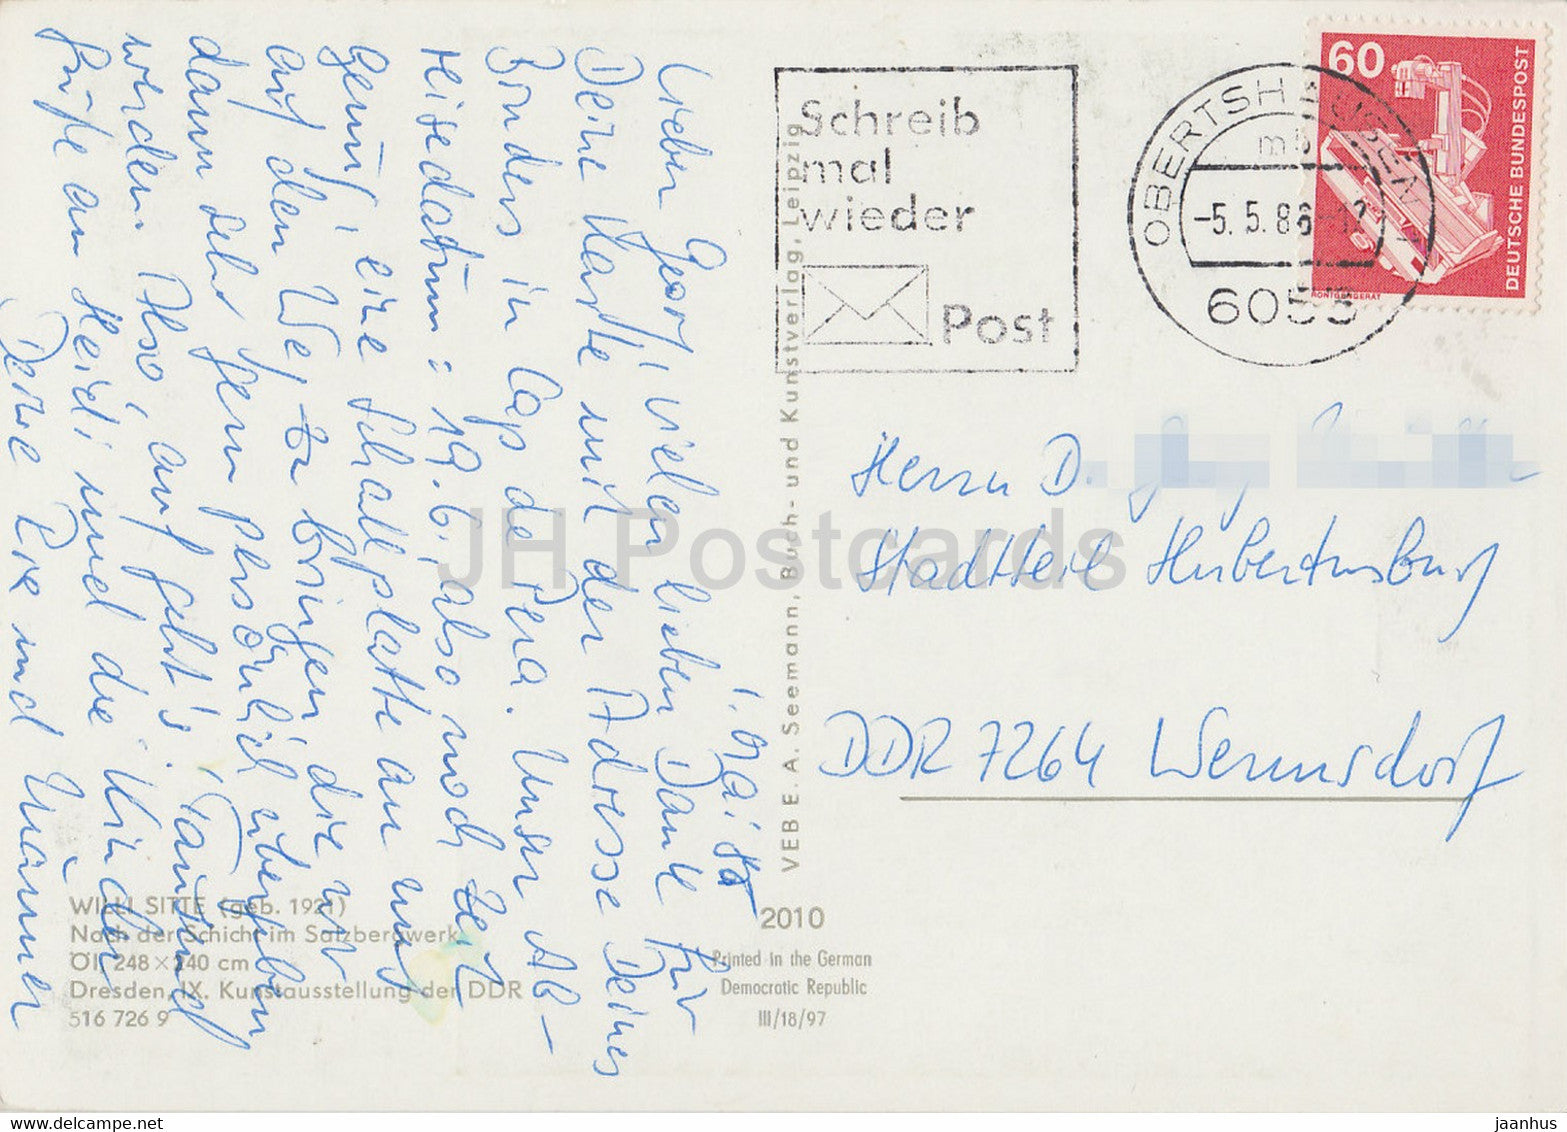 1. Mai 86
Lieber Georg, vielen lieben Dank für
Deine Karte mit der Adresse Deines
Bruders in Cap de Pera. Unser Ab-
reisedatum: 19.6., also noch Zeit
genug, eine Schallplatte an uns
auf den Weg zu bringen, die wir
dann sehr gern persönlich übergeben
werden. Also, auf geht's. Tausend
Grüße an Heidi und die Kinder
Deine Eve und Männer
WILLI SITTE (geb. 1921)
Nach der Schicht im Salzbergwerk
Öl, 248 × 240 cm
Dresden, IX. Kunstausstellung der DDR
516 726 9
VEB E. A. Seemann, Buch- und Kunstverlag, Leipzig
2010
Printed in the German
Democratic Republic
III/18/97
Schreib
mal
wieder
Post
OBERTSHAUSEN
mb
-5.5.86-12
6053
60
DEUTSCHE BUNDESPOST
RÖNTGENGERÄT
Herrn D.
Stadtteil Hubertusburg
DDR 7264 Wermsdorf
JH Postcards
jaanhus